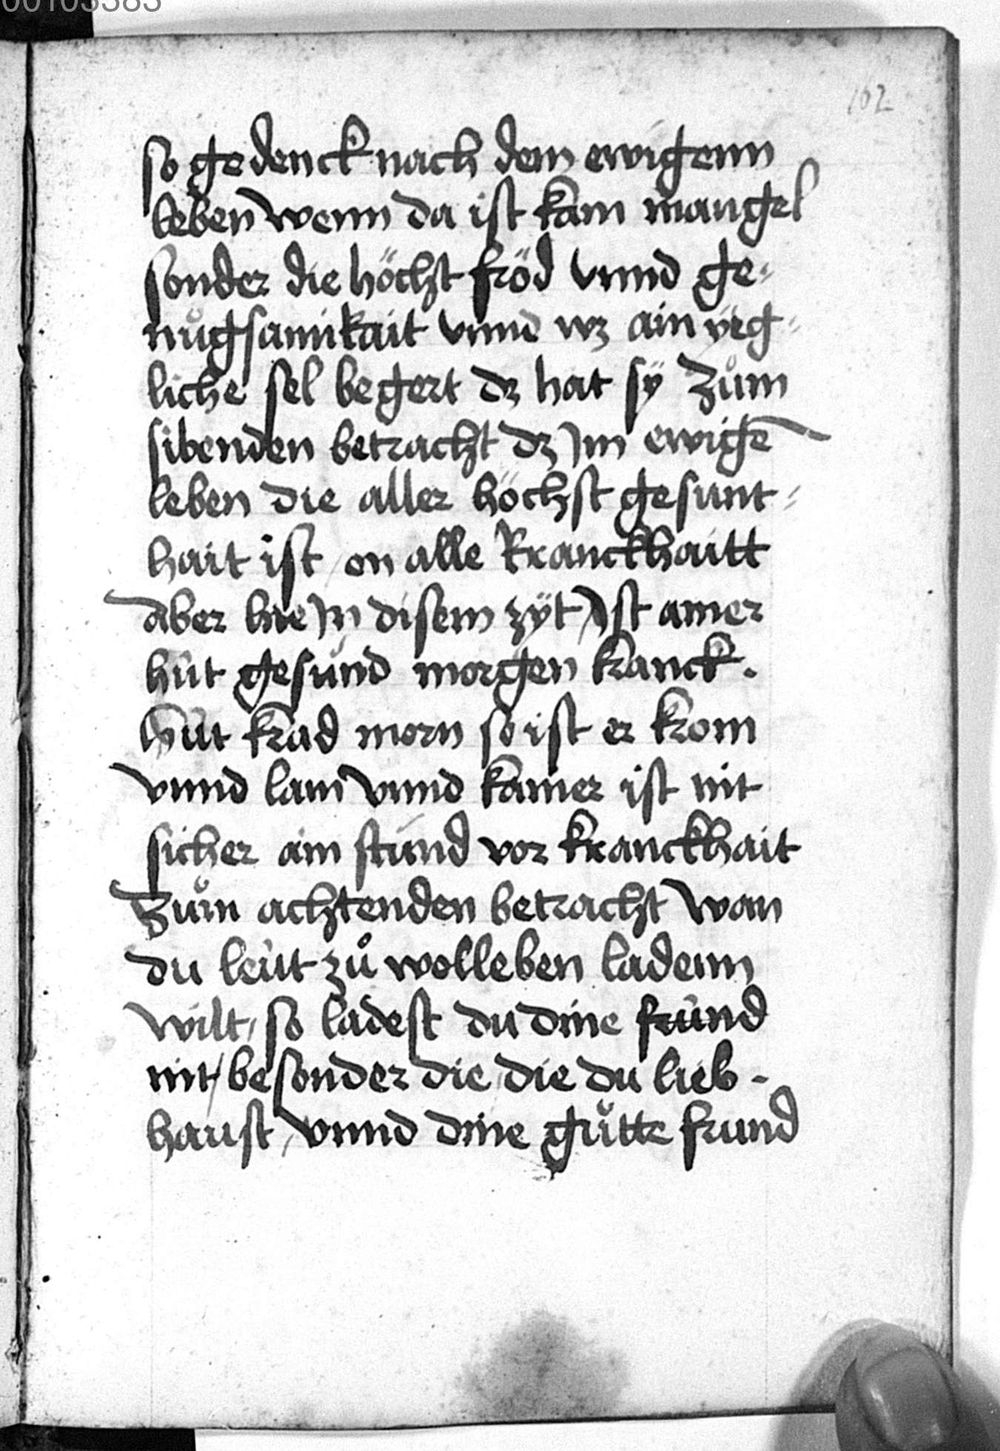 00103383
162
so gedenck nach dem ewigenn
leben wenn da ist kain mangel
sonder die höcht fröd vnnd ge-
nůgsamikait vnnd wz ain yeg-
liche sel begert dz hat sÿ Zům
sibenden betracht dz Jm ewigē
leben die aller höchst gesunt-
hait ist / on alle kranckhaitt
aber hie Jn disem zÿt / Jst ainer
hüt gesund morgen kranck.
Hüt krad morn so ist er krom
vnnd lam vnnd kainer ist nit
sicher ain stund vor kranckhait
Zům achtenden betracht wan
du leüt zů wolleben ladenn
wilt / so ladest du dine fründ
nit / besonder die die du lieb-
haust / vnnd dine gůtte frund